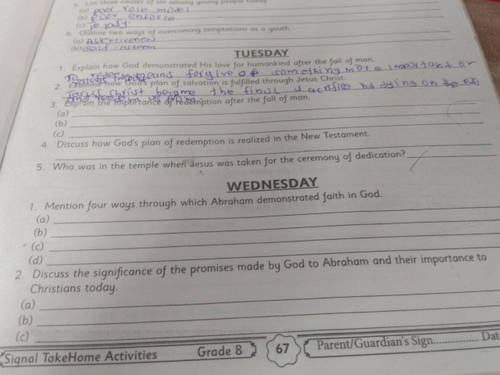 5. List three causes of sin among young people today
(a) poor role model
(b) peer
(c)
6. Outline two ways of overcoming temptations as a youth.
(a) Assertiveness
(b) self esteem
TUESDAY
1. Explain how God demonstrated His love for humankind after the fall of man.
means forgive of something more important or
2. plan of salvation is fulfilled through Jesus Christ.
Jesus Christ became the final sacrifice by dying on the
3. Explain the importance of redemption after the fall of man.
(a)
(b)
(c)
4. Discuss how God's plan of redemption is realized in the New Testament.
5. Who was in the temple when Jesus was taken for the ceremony of dedication?
WEDNESDAY
1. Mention four ways through which Abraham demonstrated faith in God.
(a)
(b)
(c)
(d)
2. Discuss the significance of the promises made by God to Abraham and their importance to
Christians today.
(a)
(b)
(c)
Signal TakeHome Activities Grade 8 67 Parent/Guardian's Sign............... Dat